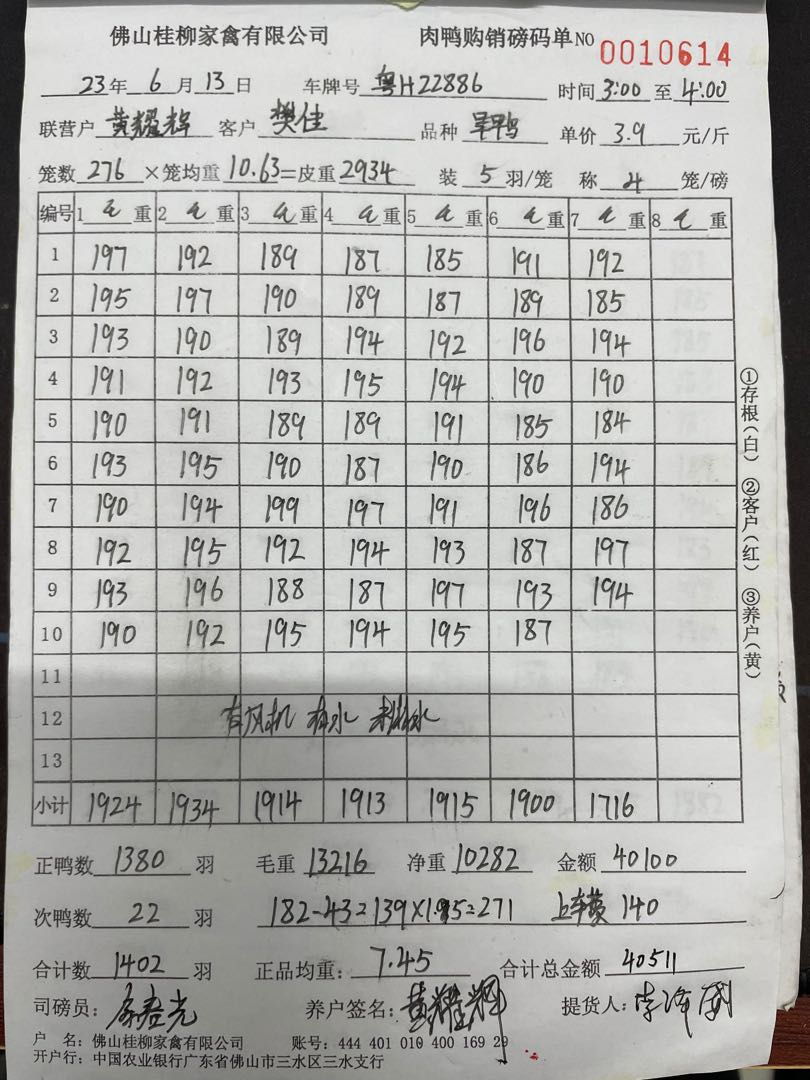 佛山桂柳家禽有限公司 肉鸭购销磅码单NO 0010614
23年 6月 13日 车牌号 粤H22886 时间 3:00 至 4:00
联营户 黄耀辉 客户 樊佳 品种 单价 3.9 元/斤
笼数 276 ×笼均重 10.63=皮重 2934 装 5 羽/笼 称 4 笼/磅
编号 1 毛 重 2 毛 重 3 毛 重 4 毛 重 5 毛 重 6 毛 重 7 毛 重 8 毛 重
1 197 192 189 187 185 191 192
2 195 197 190 189 187 189 185
3 193 190 189 194 192 196 194
4 191 192 193 195 194 190 190
5 190 191 189 189 191 185 184
6 193 195 190 187 190 186 194
7 190 194 199 197 191 196 186
8 192 195 192 194 193 187 197
9 193 196 188 187 197 193 194
10 190 192 195 194 195 187
11
12 有风机 有水
13
小计 1924 1934 1914 1913 1915 1900 1716
正鸭数 1380 羽 毛重 13216 净重 10282 金额 40100
次鸭数 22 羽 182-43=139×1.95=271 140
合计数 1402 羽 正品均重: 7.45 合计总金额 40511
司磅员: 养户签名: 黄耀辉 提货人:
户 名: 佛山桂柳家禽有限公司 账号: 444 401 010 400 169 29
开户行: 中国农业银行广东省佛山市三水区三水支行
①存根(白) ②客户(红) ③养户(黄)